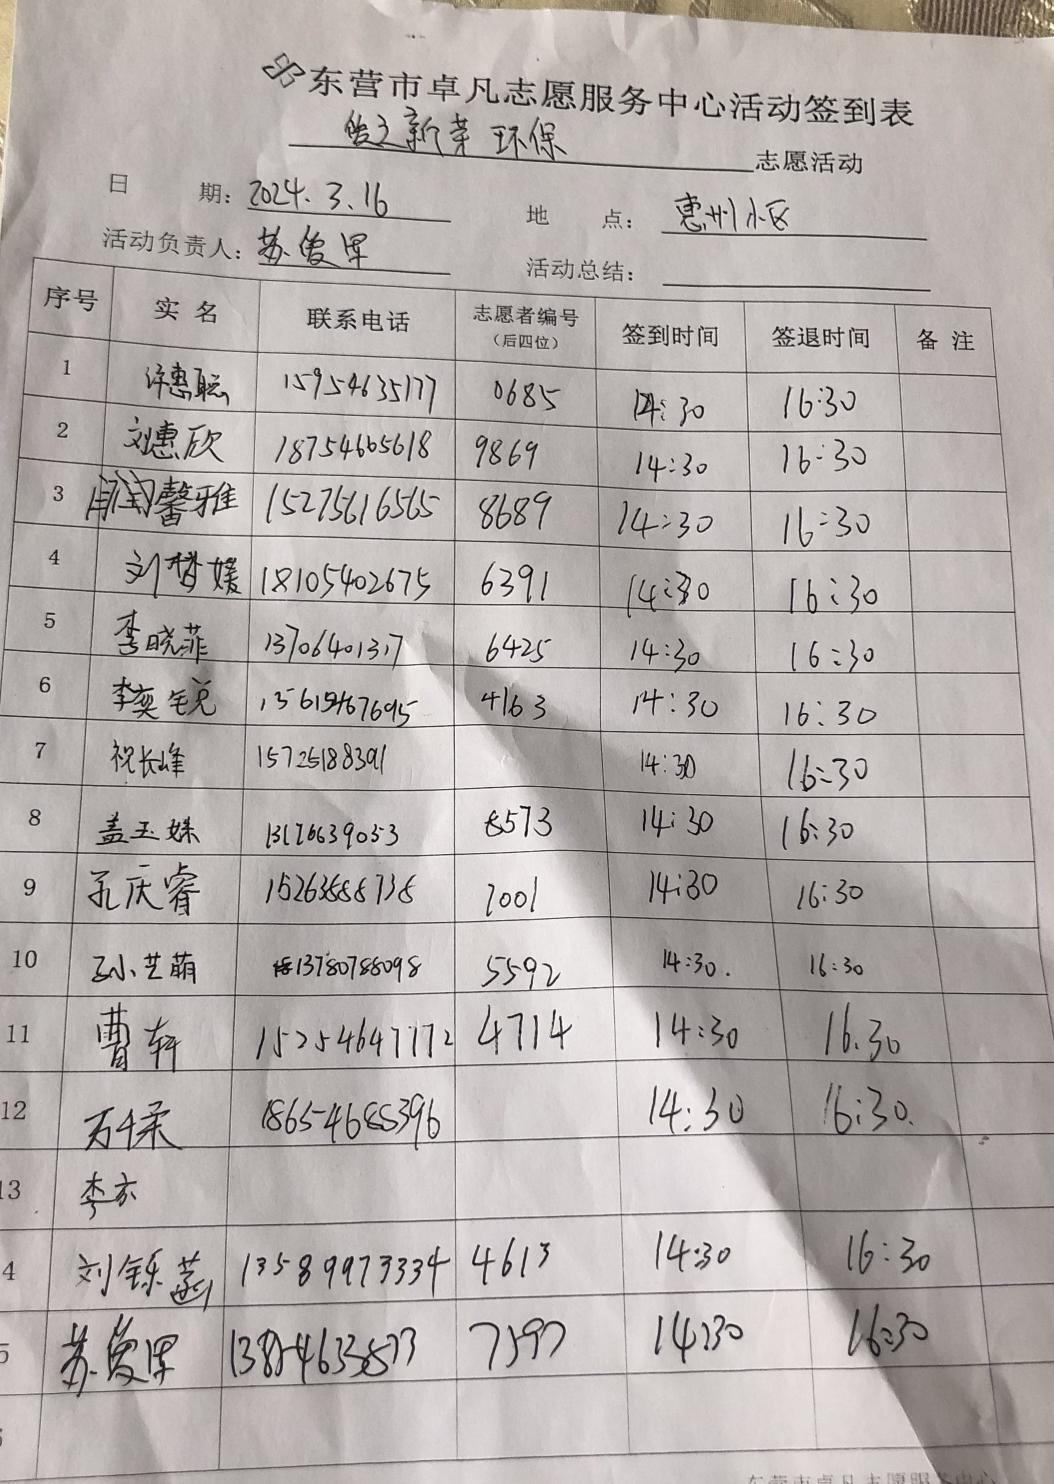 东营市卓凡志愿服务中心活动签到表
环保 志愿活动
日 期: 2024.3.16 地 点: 惠州小区
活动负责人: 苏俊国 活动总结:
序号 实名 联系电话 志愿者编号(后四位) 签到时间 签退时间 备注
1 许惠聪 15954635177 0685 14:30 16:30
2 刘惠欣 18754605618 9869 14:30 16:30
3 馨雅 15275616565 8689 14:30 16:30
4 刘梦媛 18105402675 6391 14:30 16:30
5 李晓菲 1370640137 6425 14:30 16:30
6 李奕锐 4163 14:30 16:30
7 祝长峰 15725188391 14:30 16:30
8 盖玉姝 13176639053 8573 14:30 16:30
9 孔庆睿 15263888738 7001 14:30 16:30
10 孙艺萌 13780788098 5592 14:30. 16:30
11 曹轩 15254647172 4714 14:30 16.30
12 万千柔 18654685396 14:30 16:30.
13 李亦
4 刘铄 13589973334 4613 14:30 16:30
5 苏俊国 7597 14:30 16:30